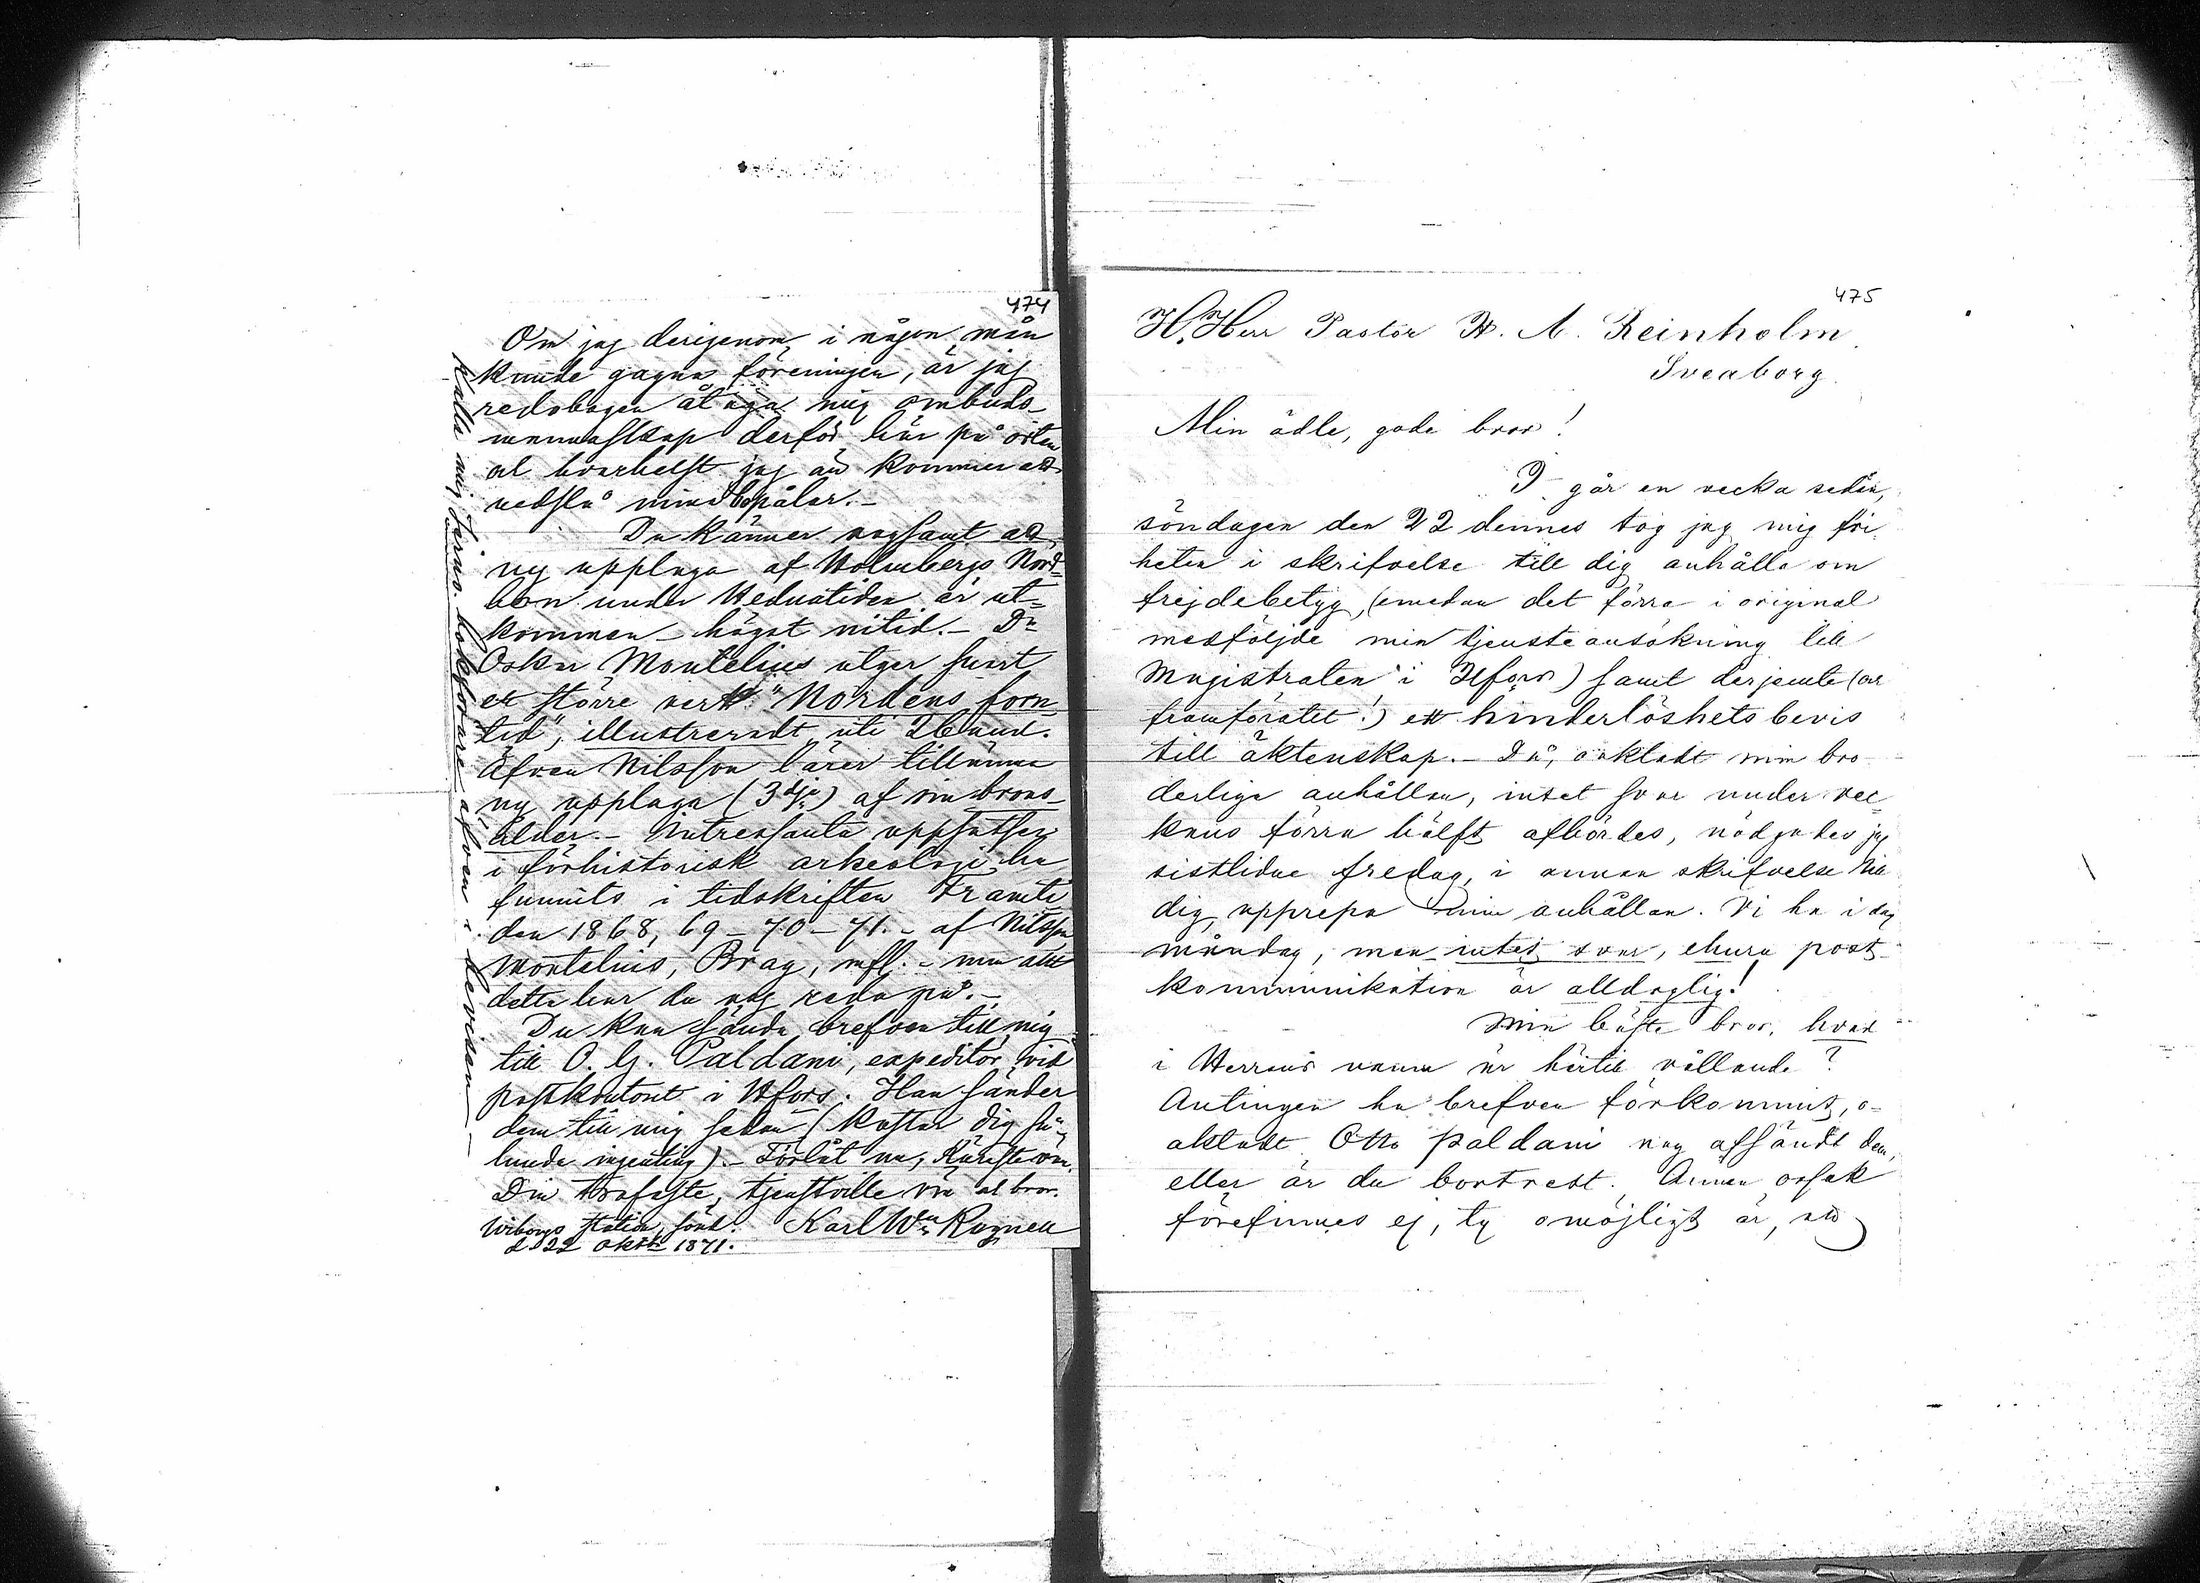 474
Om jag derigenom i någon mån
kunde gagna föreningen, är jag
redobogen åtaga mig ombuds-
mannaskap derför här på orten
al hvarhelst jag än kommer att
nedslå mina bopålar.-
Du känner nogsamt att
ny upplaga af Holmbergs Nord-
bon under Hednatiden är ut-
kommen - högst nitid. - Dr
Oskar Montelius utger snart
ett större verk: "Nordens forn
tid", illustreradt uti 2 band.
Äfven Nilsson lärer tillämna
ny upplaga (3dje) af sin brons-
ålder. - Intressanta uppsatser
i förhistorisk arkeologi ha
funnits i tidskriften Framti
den 1868, 69 - 70 - 71. - af Nilsson
Montelius, Brag, mfl. - men allt
detta har du nog reda på. -
Du kan sända brefven till mig
till O. G. Paldani, expeditör vid
postkontoret i Hfors. Han sänder
dem till mig sedan (kostar dig så-
lunda ingenting). - Förlåt nu, käreste vän.
Din trofaste, tjenstville vän al bror.
Wiborgs station, sönd. Karl Wm
d. 22 Oktb 1871.
kalla mig
475
H. Herr Pastor H. A. Reinholm
Sveaborg.
Min ädle, gode bror!
I går en vecka sedan,
söndagen den 22 dennes tog jag mig fri
heten i skrifvelse till dig anhålla om
frejdebetyg, (emedan det förra i original
medföljde min tjensteansökning till
Magistraten i Hfors) samt derjemte (ar
framföratet!) ett hinderlöshetsbevis
till äktenskap. - Då, oaktadt min bro
derliga anhållan, intet svar under vec
kans förra hälft afhördes, nödgades jag
sistlidne fredag, i annan skrifvelse till
dig, upprepa min anhållan. Vi ha i dag
måndag, men intet svar, ehuru post-
kommunikation är alldaglig!
Min bäste bror, hvad
i Herrans namn är härtill vållande?
Antingen ha brefven förkommit, o-
aktadt Otto Paldani nog afsändt dem,
eller är du bortrest. Annan orsak
förefinnes ej, ty omöjligt är, att